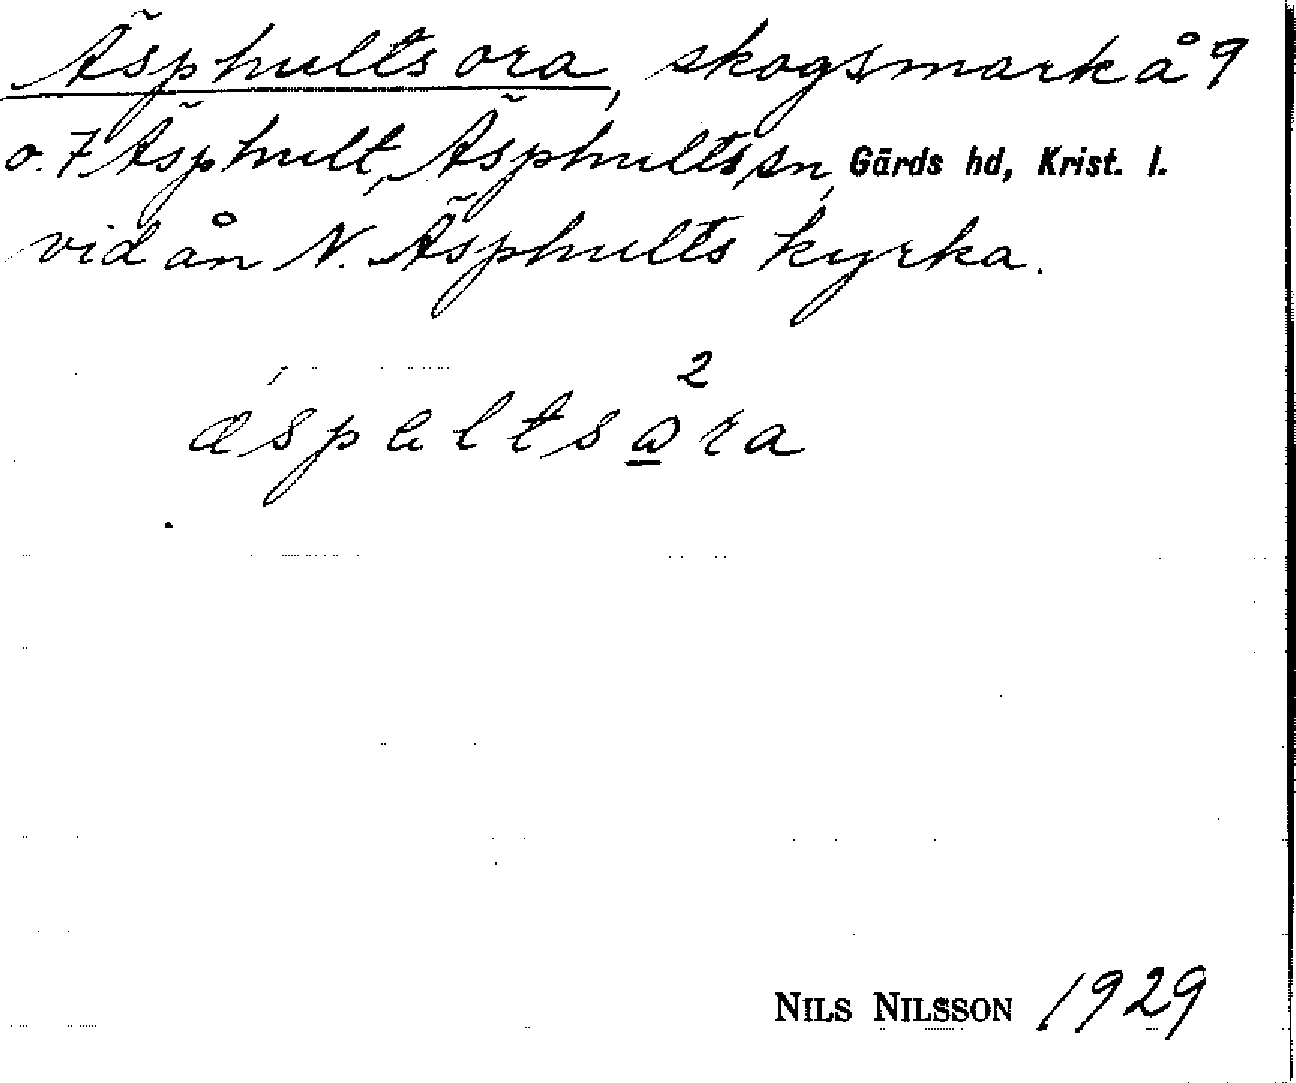 Äsphultsora, skogsmark å 9
o. 7 Äsphult, Äsphults sn, Gärds hd, Krist. l.
vid ån N. Äsphults kyrka.
2
æspeltsara
NILS NILSSON 1929